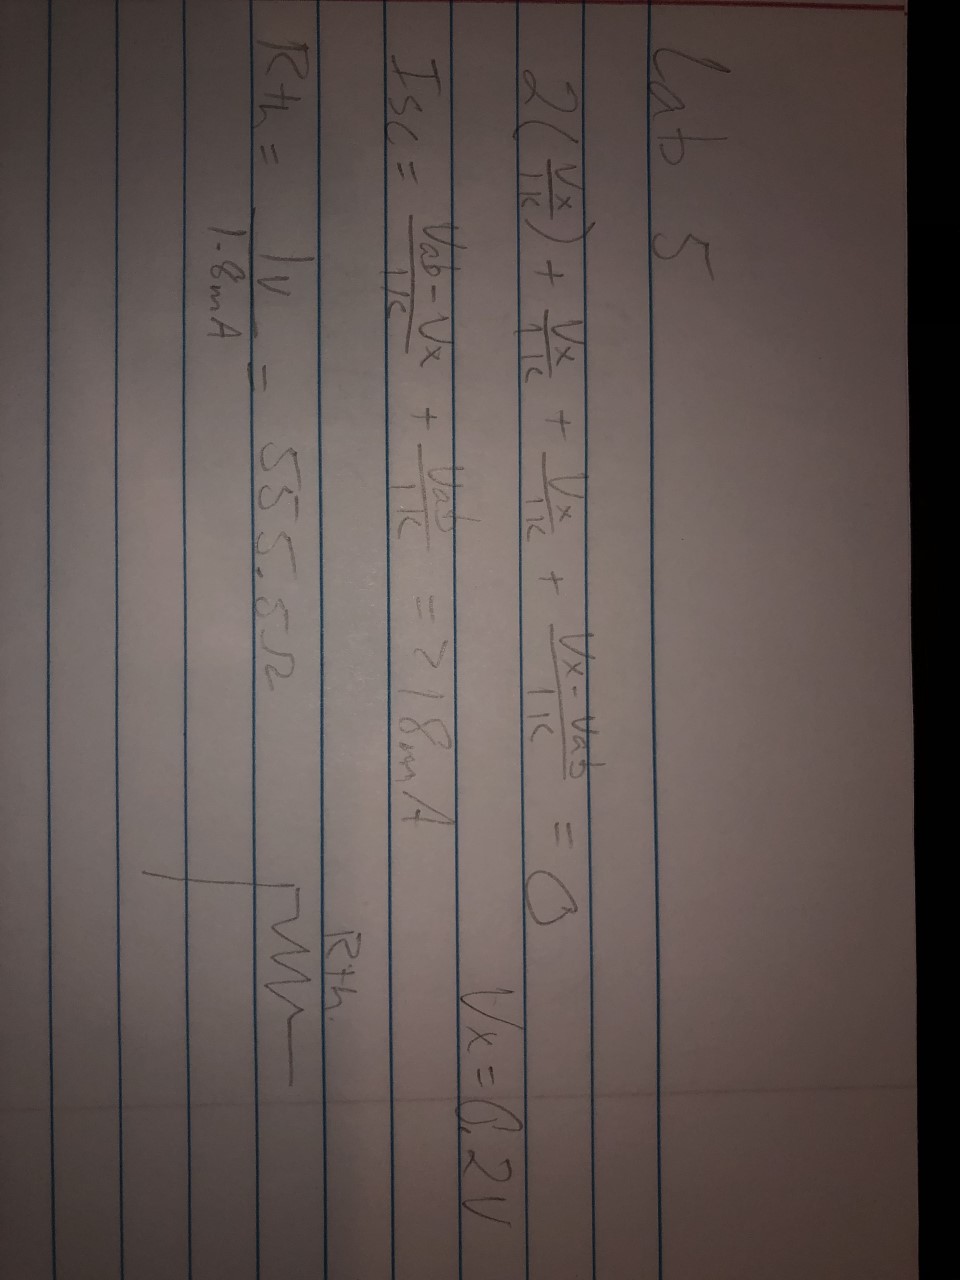 Lab 5
2(Vx/1k) + Vx/1k + Vx/1k + Vx-Vab/1k = 0
Vx = 0.2V
Isc = Vab-Vx/1k + Vab/1k => 1.8mA
Rth = 1V/1.8mA = 555.5Ω
Rth.